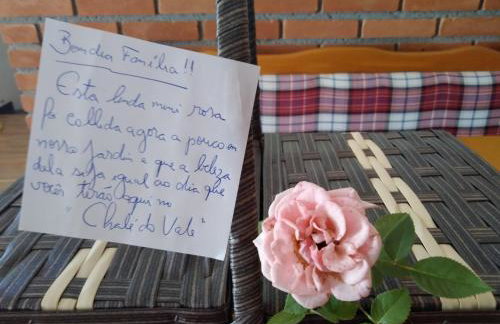 Bom dia Família!!
Esta linda mini rosa
foi collida agora a pouco em
nosso Jardin e que a beleza
dela seja igual ao dia que
vocês terão aqui no
"Chalé do Vale"